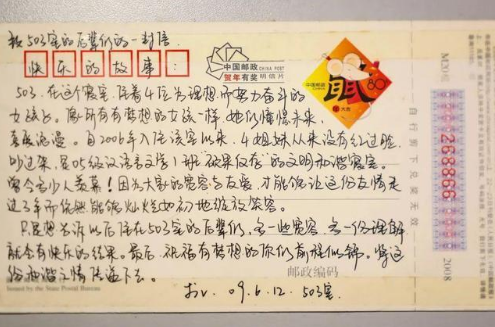 致503室的后辈们的一封信
快乐的故事：
中国邮政
CHINA POST
贺年有奖
明信片
中国邮政
80
503. 在这个寝室,住着4位为理想而努力奋斗的
女孩子。像所有有梦想的女孩一样,她们憧憬未来,
喜爱浪漫。自2006年入住该室以来,4姐妹从来没有红过脸,
吵过架,是05级汉语言文学1班硕果仅存的文明和谐寝室。
曾令多少人羡慕！因为大家的宽容与友爱,才能够让这份友情走
过3年而依然能够灿烂如初地绽放笑容。
只是想告诉以后住在503室的后辈们,多一些宽容,多一份理解
就会有快乐的结果。最后,祝福有梦想的你们前程似锦。将这
份和谐之情传递下去。
邮政编码
09.6.12. 503室.
Issued by the State Postal Bureau
268866
2008
自行剪下兑奖无效